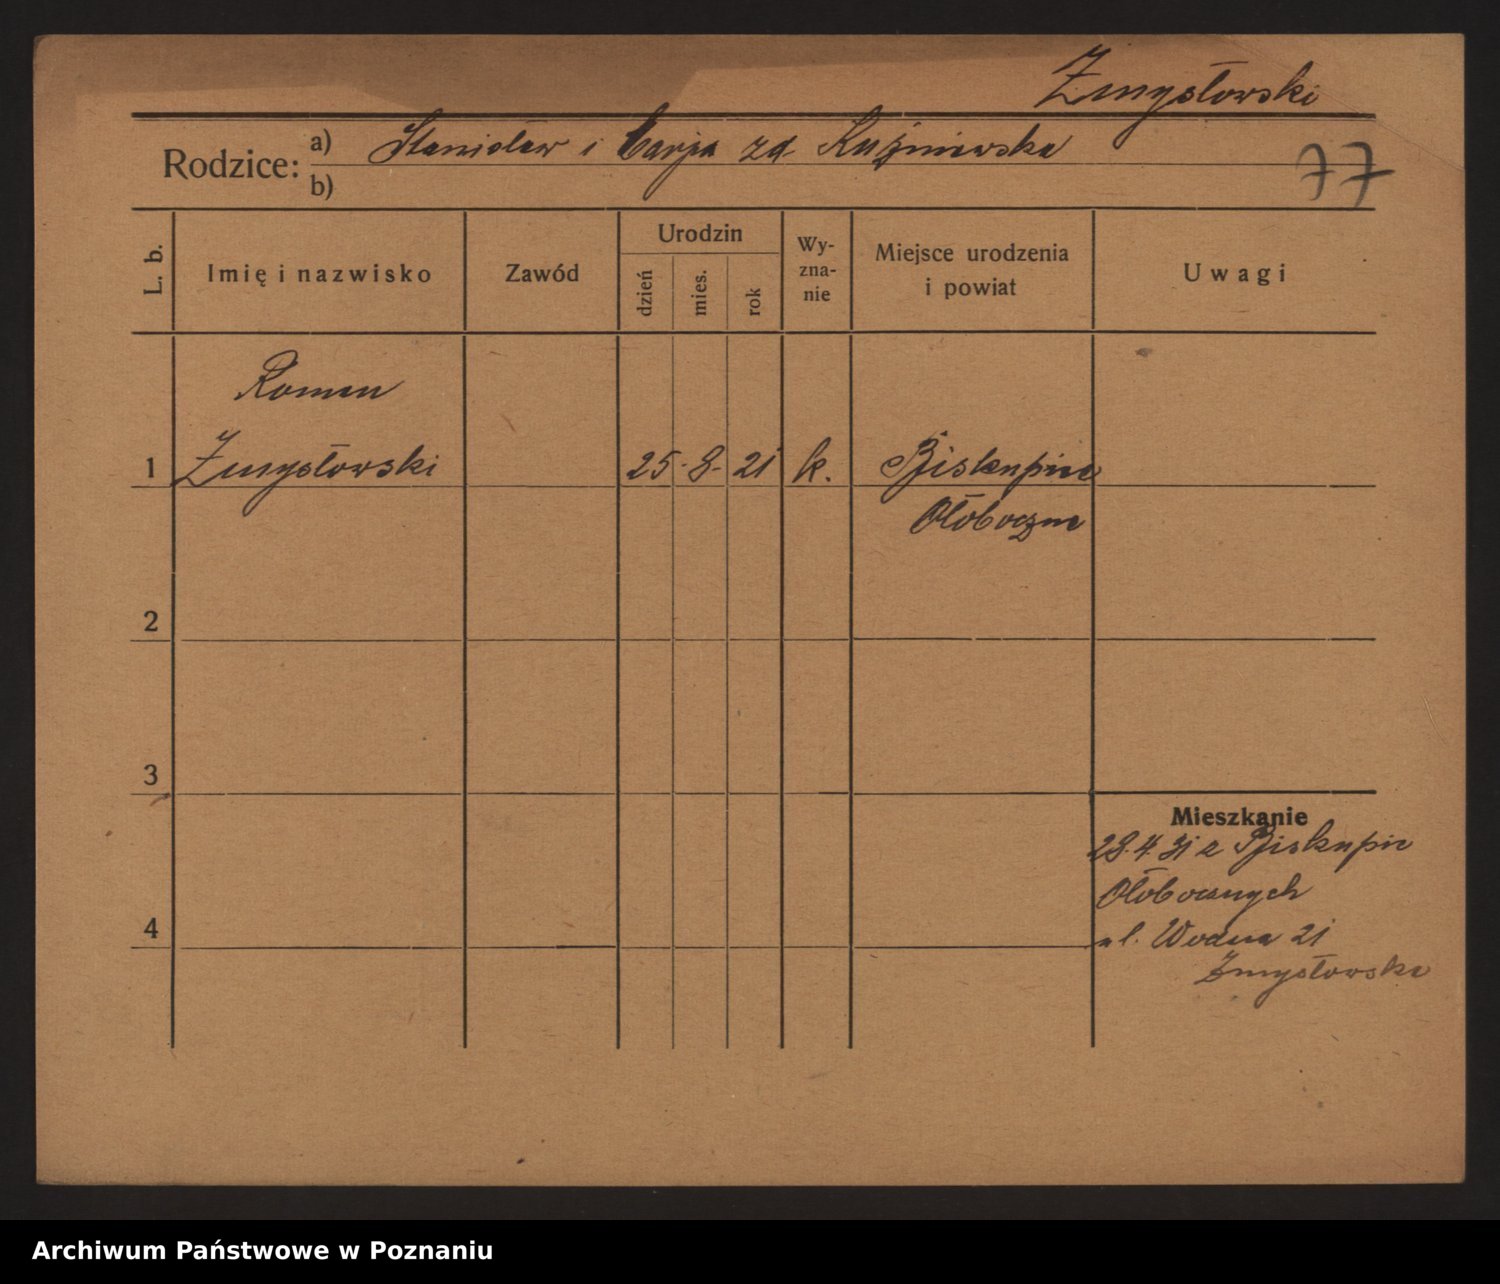 Zmysłowski
Rodzice: a) Stanisław i Marja zd. Kuźniewska
b)
77
L. b.
Imię i nazwisko
Zawód
Urodzin
dzień
mies.
rok
Wy-
zna-
nie
Miejsce urodzenia
i powiat
Uwagi
Roman
1 Zmysłowski 25. 8. 21 k. Biskupice
Ołoboczne
2
3
Mieszkanie
28.4.31 z Biskupic
Ołobocznych
4
ul. Wodna 21
Zmysłowska
Archiwum Państwowe w Poznaniu